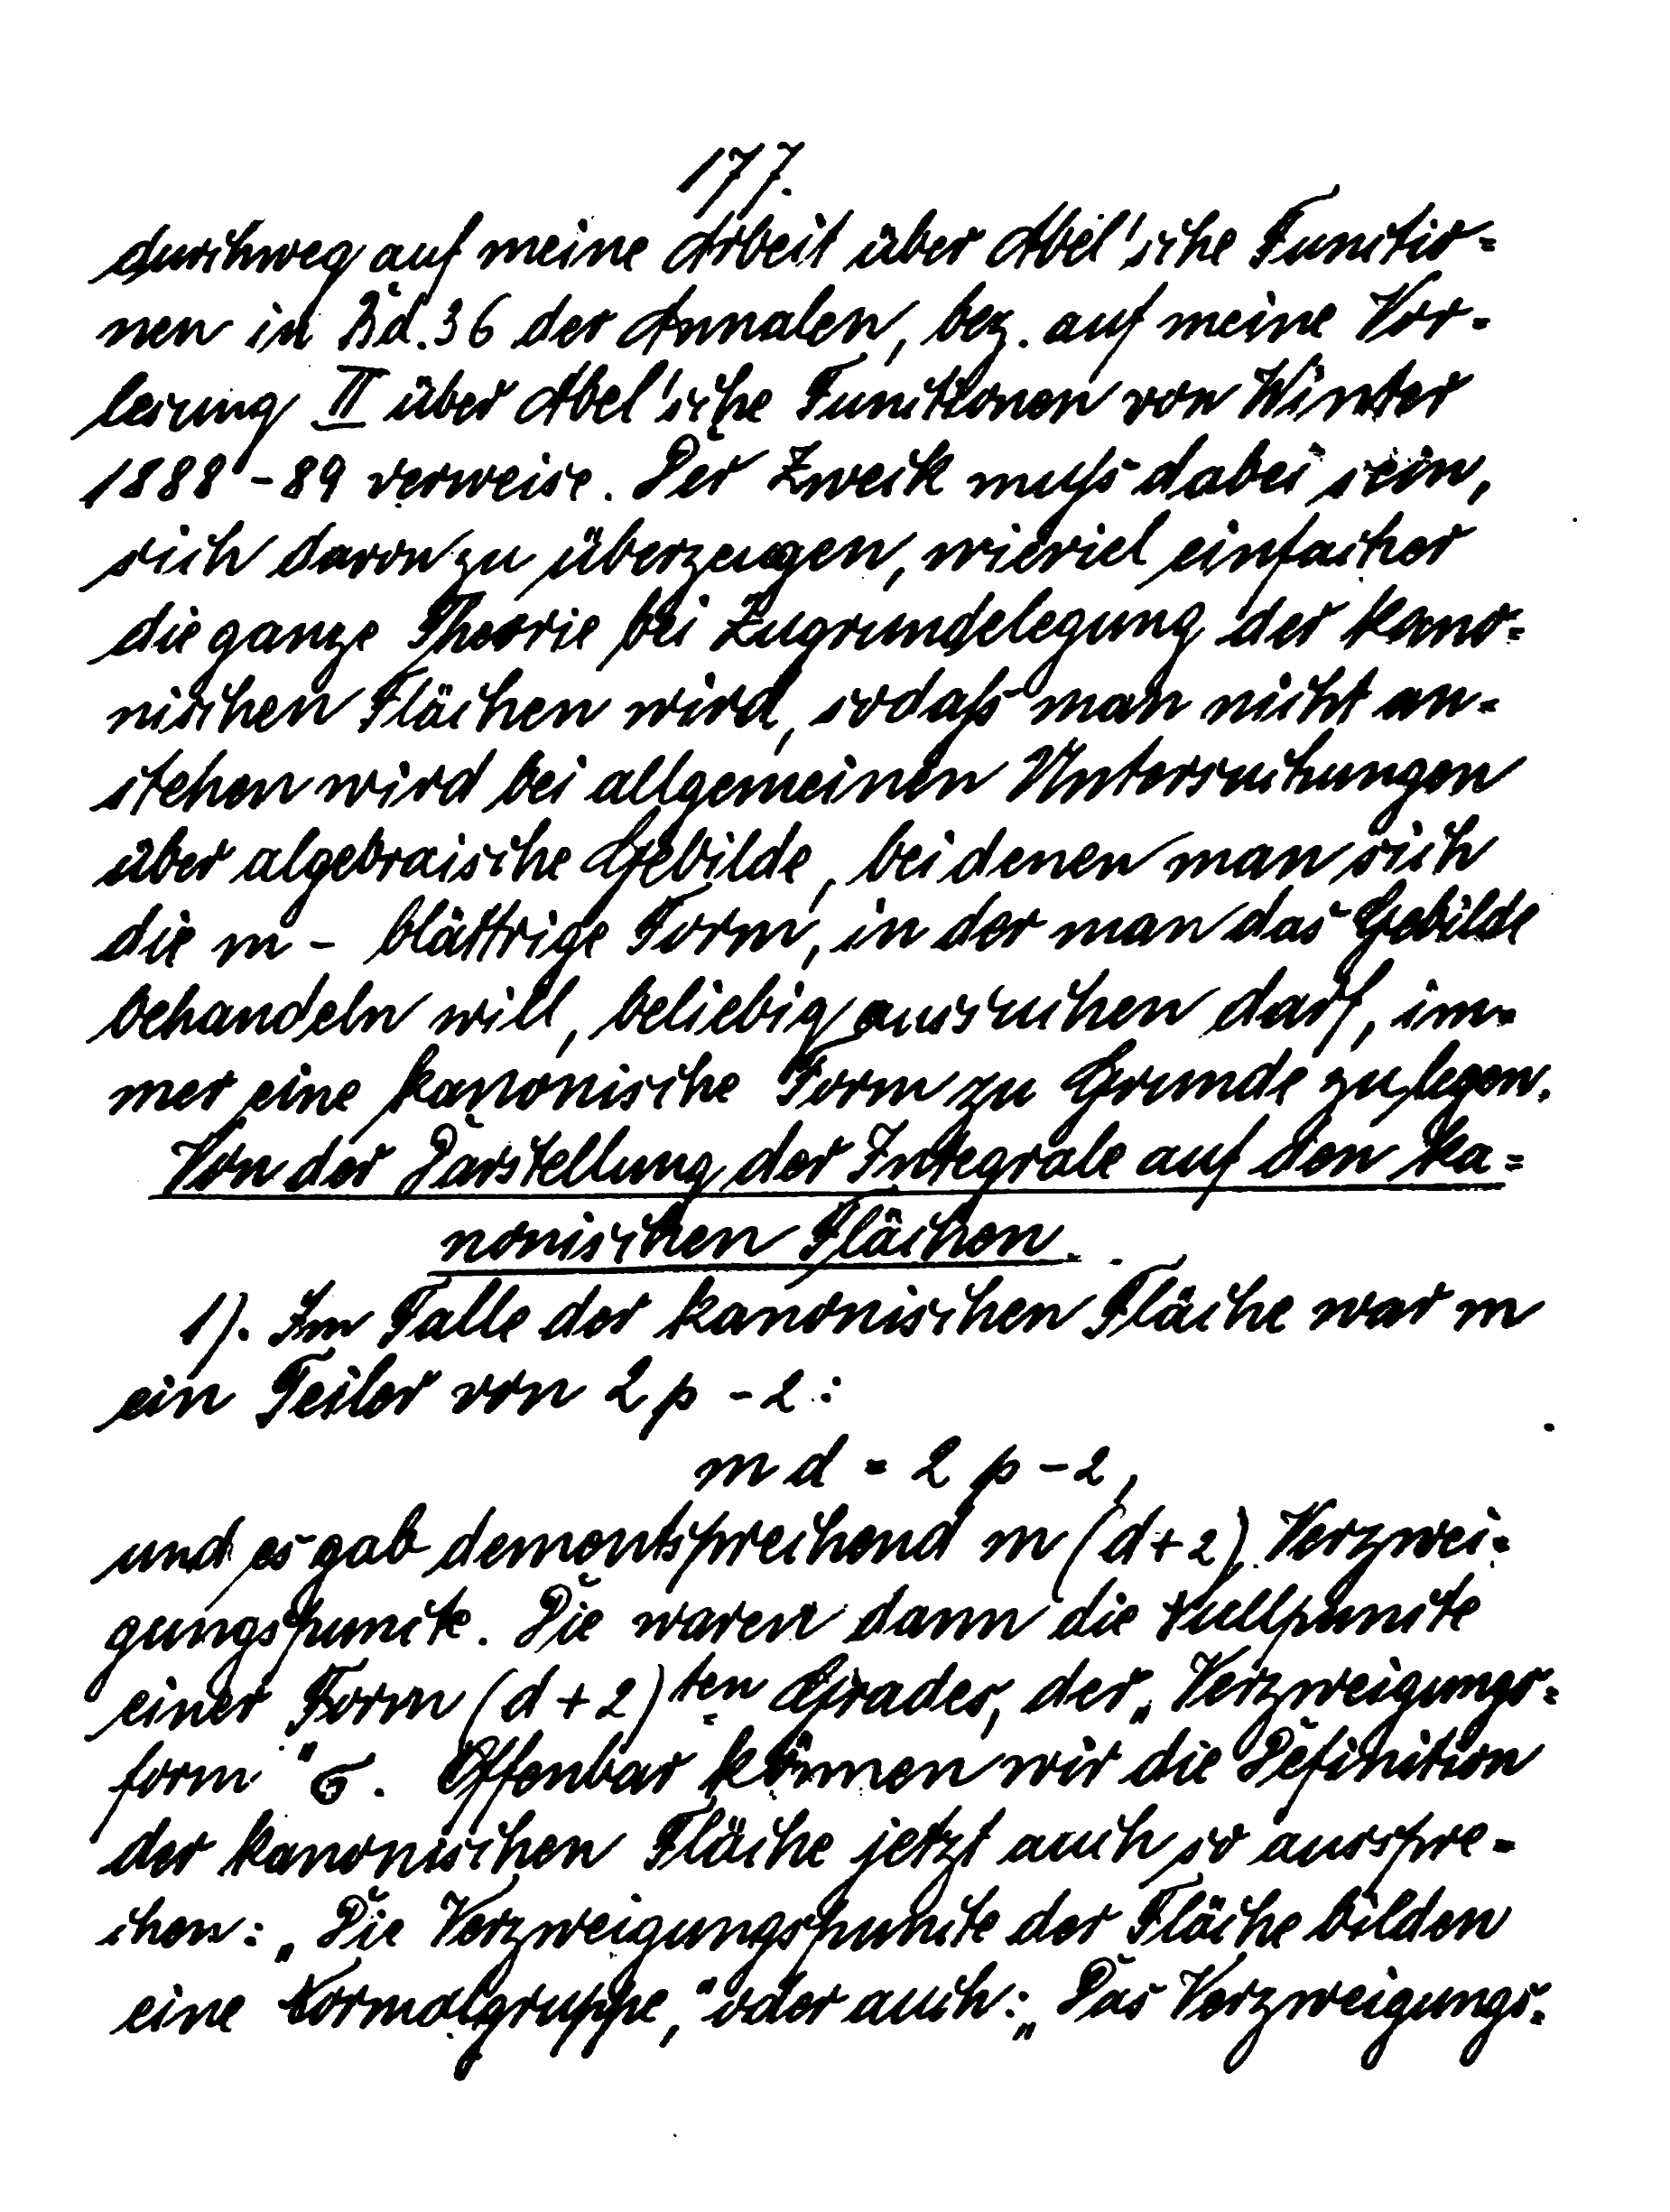 177.
durchweg auf meine Arbeit über Abel'sche Functio-
nen in Bd. 36 der Annalen, bez. auf meine Vor-
lesung II über Abel'sche Functionen von Winter
1888-89 verweise. Der Zweck muß dabei sein,
sich davon zu überzeugen, wieviel einfacher
die ganze Theorie bei Zugrundelegung der kano-
nischen Flächen wird, sodaß man nicht an-
stehen wird bei allgemeinen Untersuchungen
über algebraische Gebilde, bei denen man sich
die m - blättrige Form, in der man das Gebilde
behandeln will, beliebig aussuchen darf, im-
mer eine kanonische Form zu Grunde zu legen.
Von der Darstellung der Integrale auf den ka-
nonischen Flächen.
1). Im Falle der kanonischen Fläche war m
ein Teiler von 2p - 2:
m d = 2p - 2,
und es gab dementsprechend m (d+2) Verzwei-
gungspuncte. Die waren dann die Nullpuncte
einer Form (d+2)ten Grades, der „Verzweigungs-
form" σ. Offenbar können wir die Definition
der kanonischen Fläche jetzt auch so ausspre-
chen: „Die Verzweigungspuncte der Fläche bilden
eine Normalgruppe," oder auch: „Das Verzweigungs-